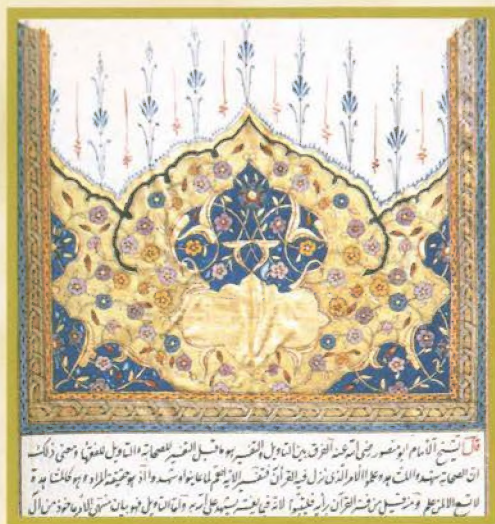 قال الشيخ الامام ابو منصور رضي الله عنه الفرق بين التاويل والتفسير هو ما قيل التفسير للصحابة والتاويل للفقهاء ومعنى ذلك
ان الصحابة شهدوا المشاهد وعلموا الامر الذى نزل فيه القرآن فتفسير الآية لما عاينوا وشهدوا اذ هو حقيقة المراد وهو كالمشاهدة
الا لمن علم ومنه قيل من فسر القرآن برأيه لانه فيما يفسر يشهد على الله به واما التاويل فهو بيان منتهى الامر ماخوذ من آل